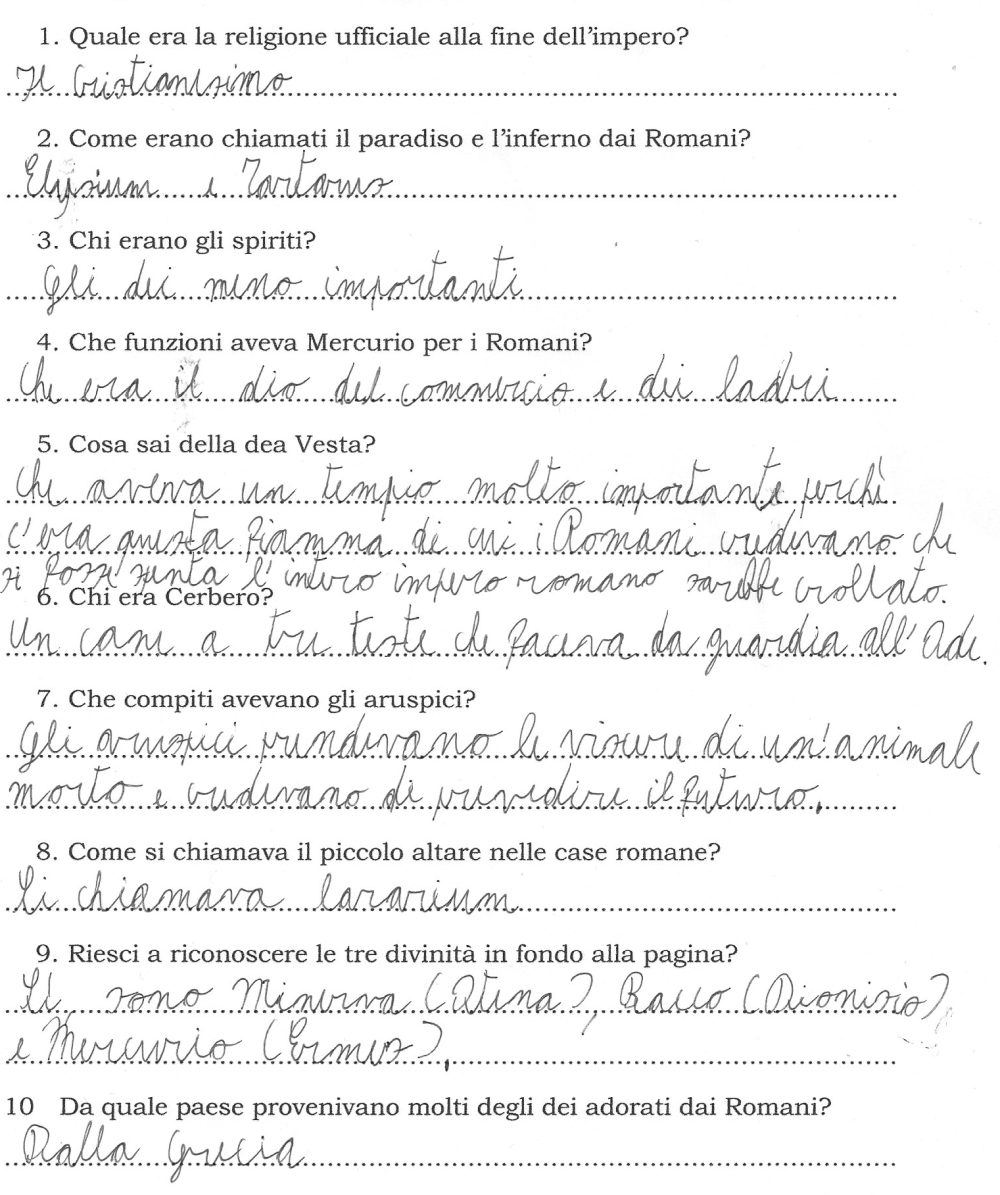 1. Quale era la religione ufficiale alla fine dell'impero?
Il Cristianisimo
2. Come erano chiamati il paradiso e l'inferno dai Romani?
Elysium e Tartarus
3. Chi erano gli spiriti?
Gli dei meno importanti
4. Che funzioni aveva Mercurio per i Romani?
Che era il dio del commercio e dei ladri
5. Cosa sai della dea Vesta?
Che aveva un tempio molto importante perchè
c'era questa fiamma di cui i Romani credevano che
se fosse spenta l'intero impero romano sarebbe crollato.
6. Chi era Cerbero?
Un cane a tre teste che faceva da guardia all'Ade.
7. Che compiti avevano gli aruspici?
Gli aruspici prendevano le viscere di un'animale
morto e credevano de prevedere il futuro.
8. Come si chiamava il piccolo altare nelle case romane?
Si chiamava lararium
9. Riesci a riconoscere le tre divinità in fondo alla pagina?
Si, sono Minerva (Atena), Bacco (Dionisio)
e Mercurio (Ermes).
10 Da quale paese provenivano molti degli dei adorati dai Romani?
Dalla Grecia